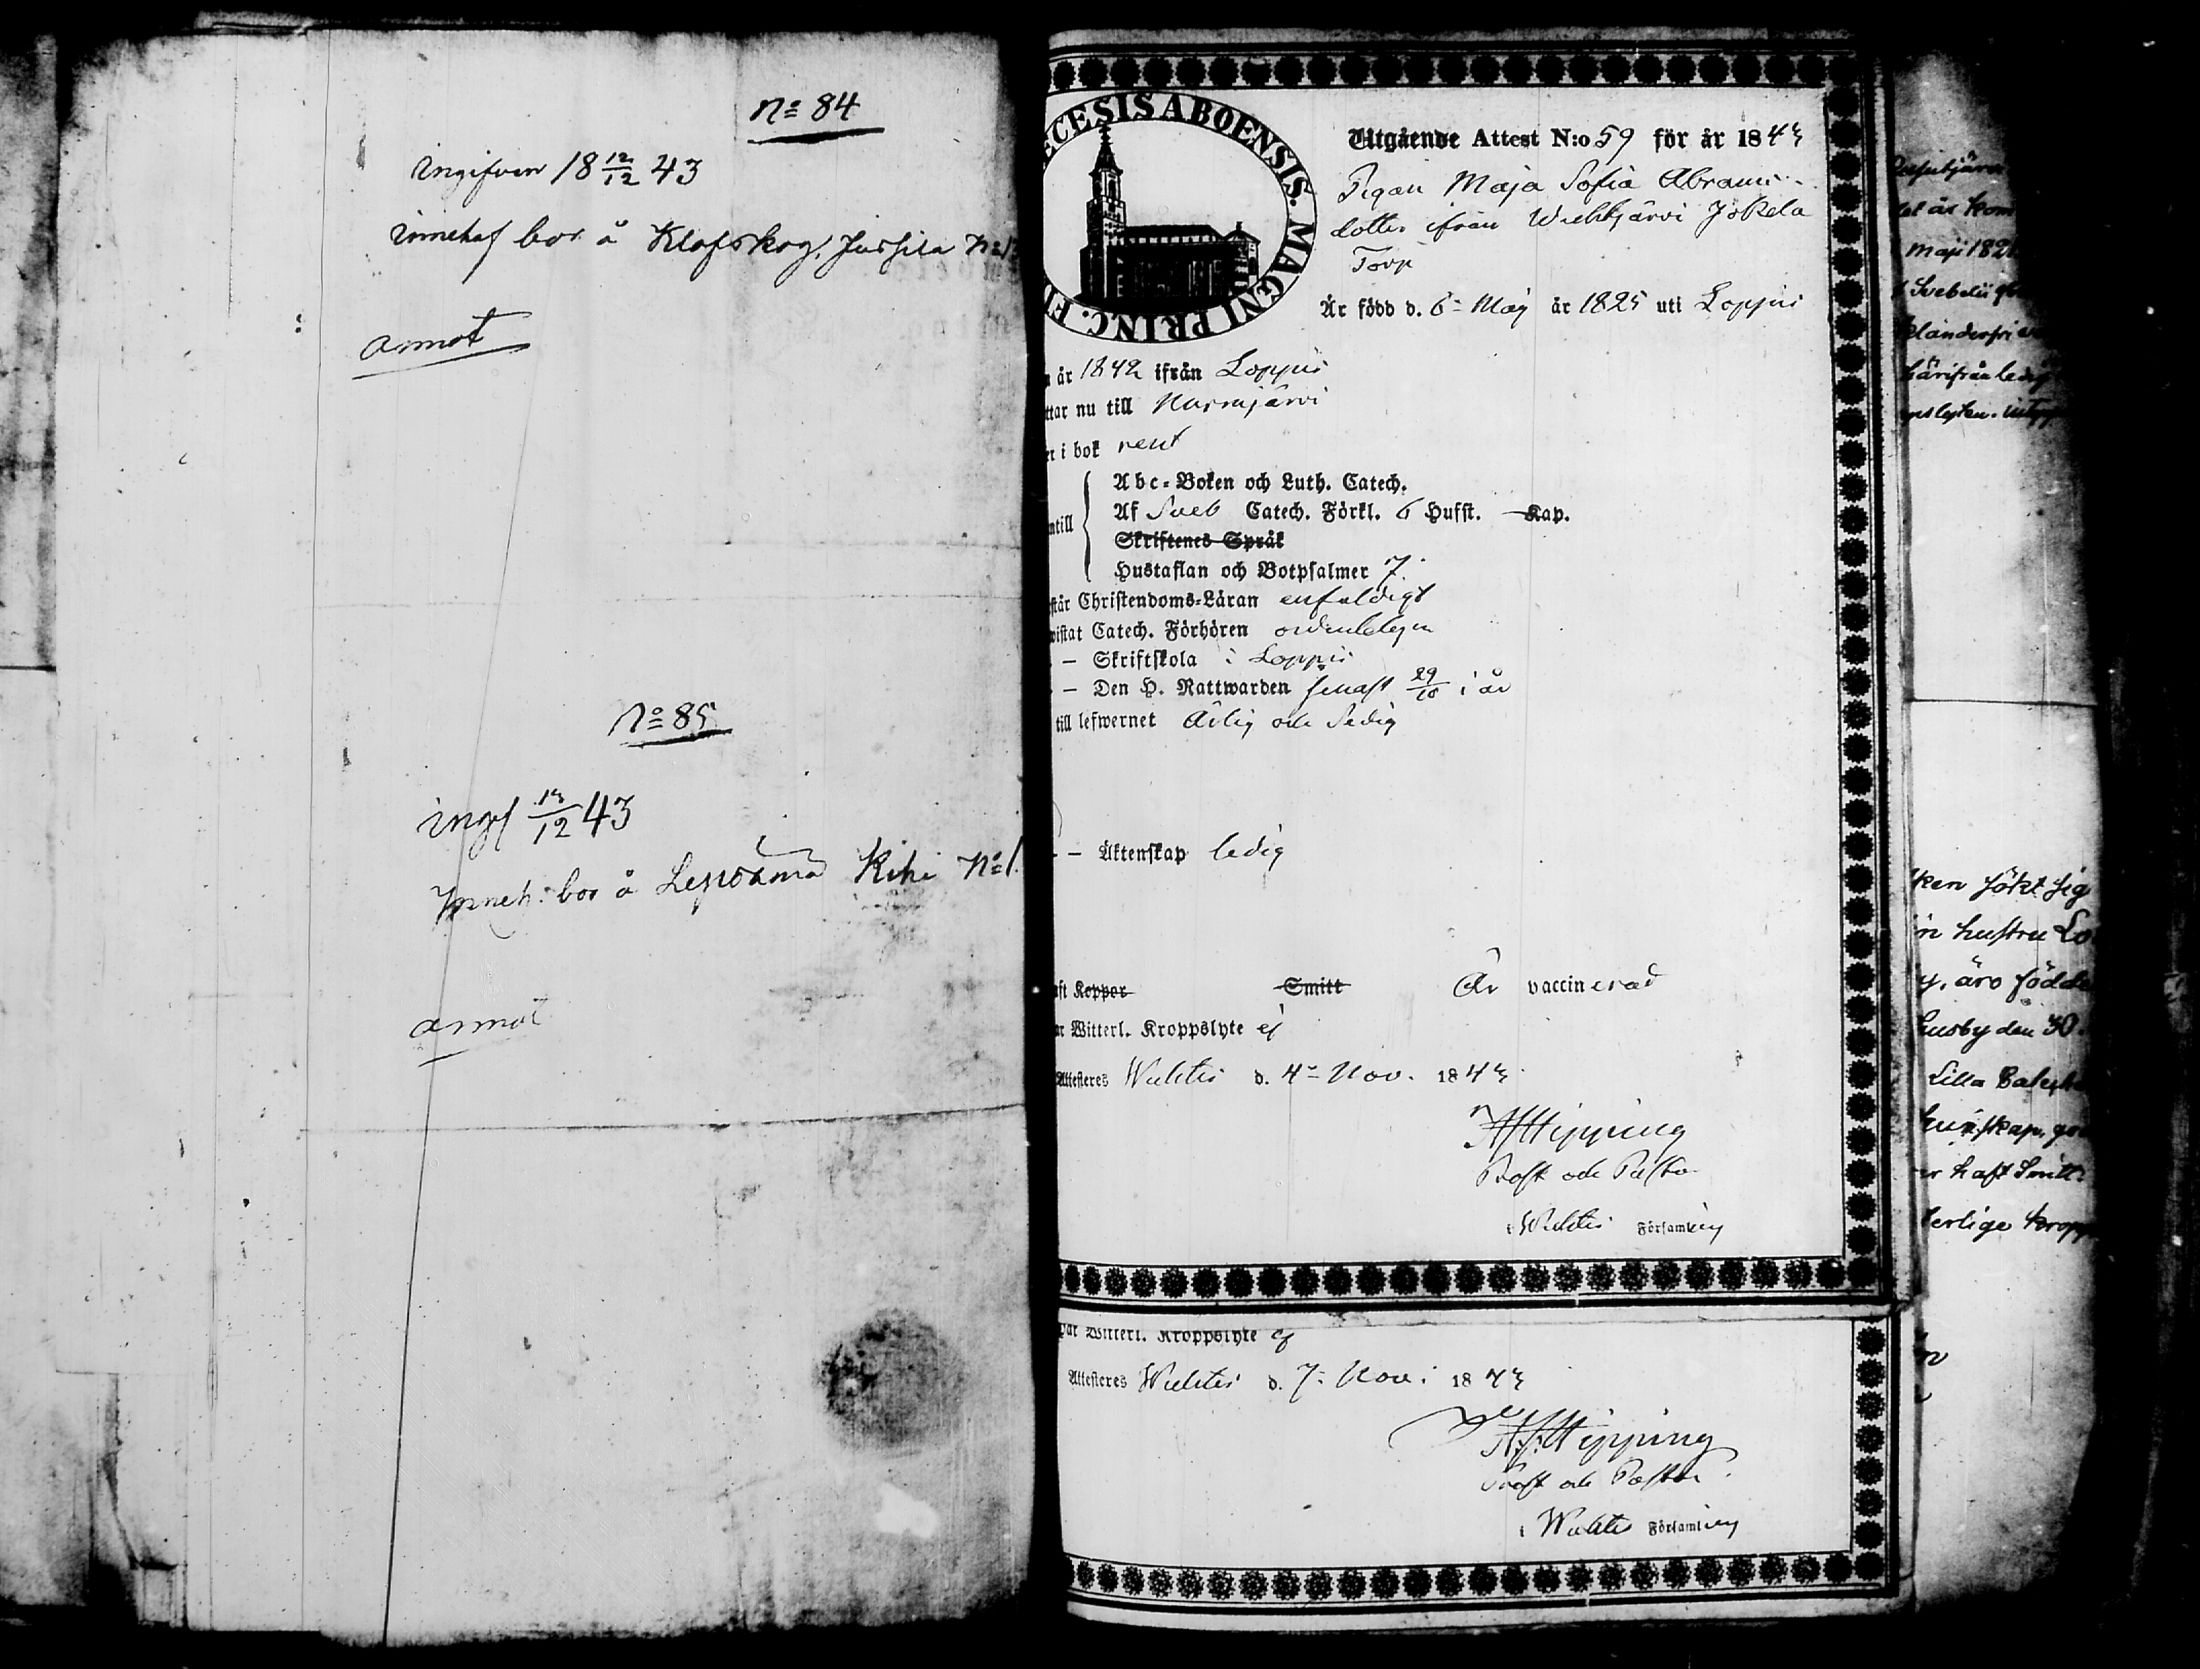 No 84
ingifven 18 12/12 43
innehaf bor å Klofskog, Jussila No 1
annot
No 85
ingif 13/12 43
Inneh: bor å Lepsämä Kihi No 1.
annot
ECESIS ABOENSIS. MAGNI PRINC. FI
Utgående Attest N:o 59 för år 1843
Pigan Maja Sofia Abrams-
dotter ifrån Wichtjärvi Jokela
Torp
Är född d. 6 Maj år 1825 uti Loppis
n år 1842 ifrån Loppis
ttar nu till Nurmijärvi
er i bok rent
ntill
Abc-Boken och Luth. Catech.
Af Sveb Catech. Förkl. 6 Hufst. Kap.
Skriftenes Språk
Hustaflan och Botpsalmer 7.
står Christendoms-Läran enfaldigt
vistat Catech. Förhören ordenteligen
— Skriftskola i Loppis
— Den H. Nattwarden senast 29/10 i år
till lefwernet Ärlig och Sedig
— Äktenskap ledig
aft Koppor Smitt Är vaccinerad
ar Witterl. Kroppslyte ej
Attesteres Wichtis d. 4 Nov. 1843
Hipping
Prost och Pastor
i Wichtis Församling
Har Witterl. Kroppslyte ej
Attesteres Wichtis d. 7 Nov: 1843
Hipping
Prost och Pastor
i Wichtis Församling
et är kom
maji 182
Svebelii
kländerfri
härifrån ledig
ken sökt sig
n hustru Lo
y, äro födde
husby den 30
Lilla
unskap, go
r haft Smitt
terlige kropp